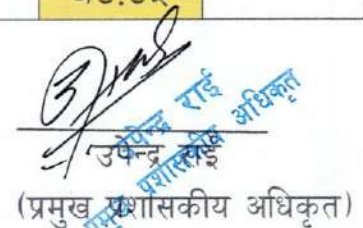 उपेन्द्र राई
प्रमुख प्रशासकीय अधिकृत
उपेन्द्र राई
(प्रमुख प्रशासकीय अधिकृत)